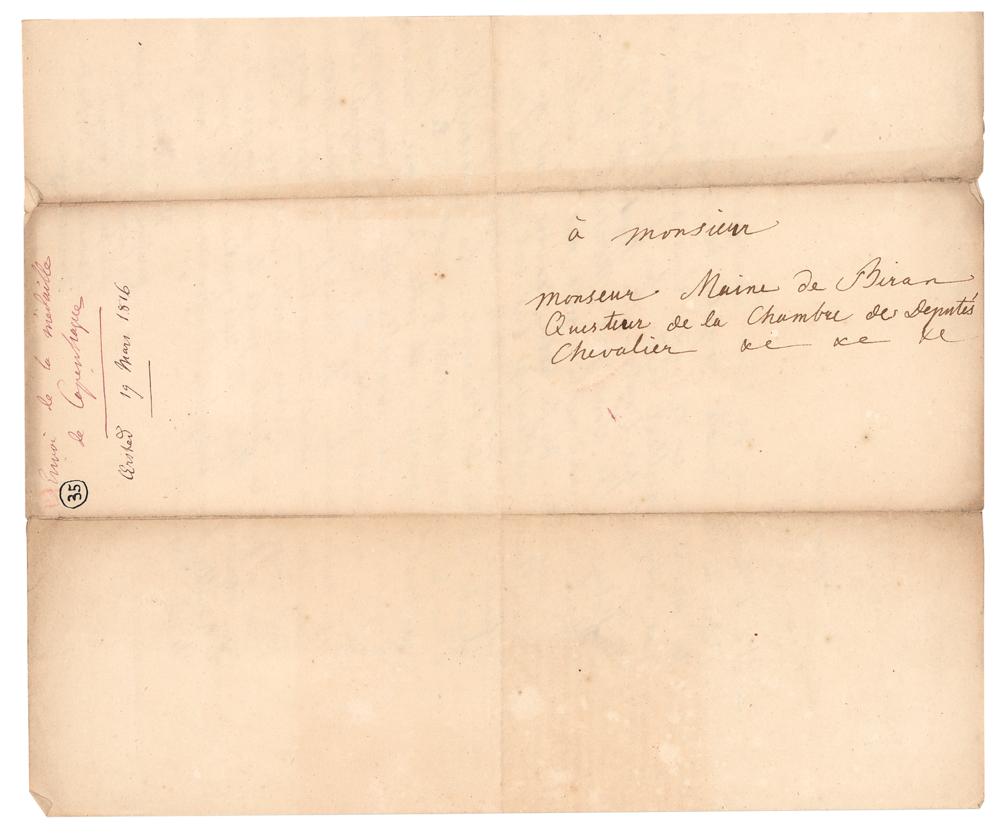 à monsieur
monseur Maine de Biran
Questeur de la Chambre des Deputés
Chevalier &c &c &c
Envoi de la médaille
de Copenhague
Œrsted 19 Mars 1816
35